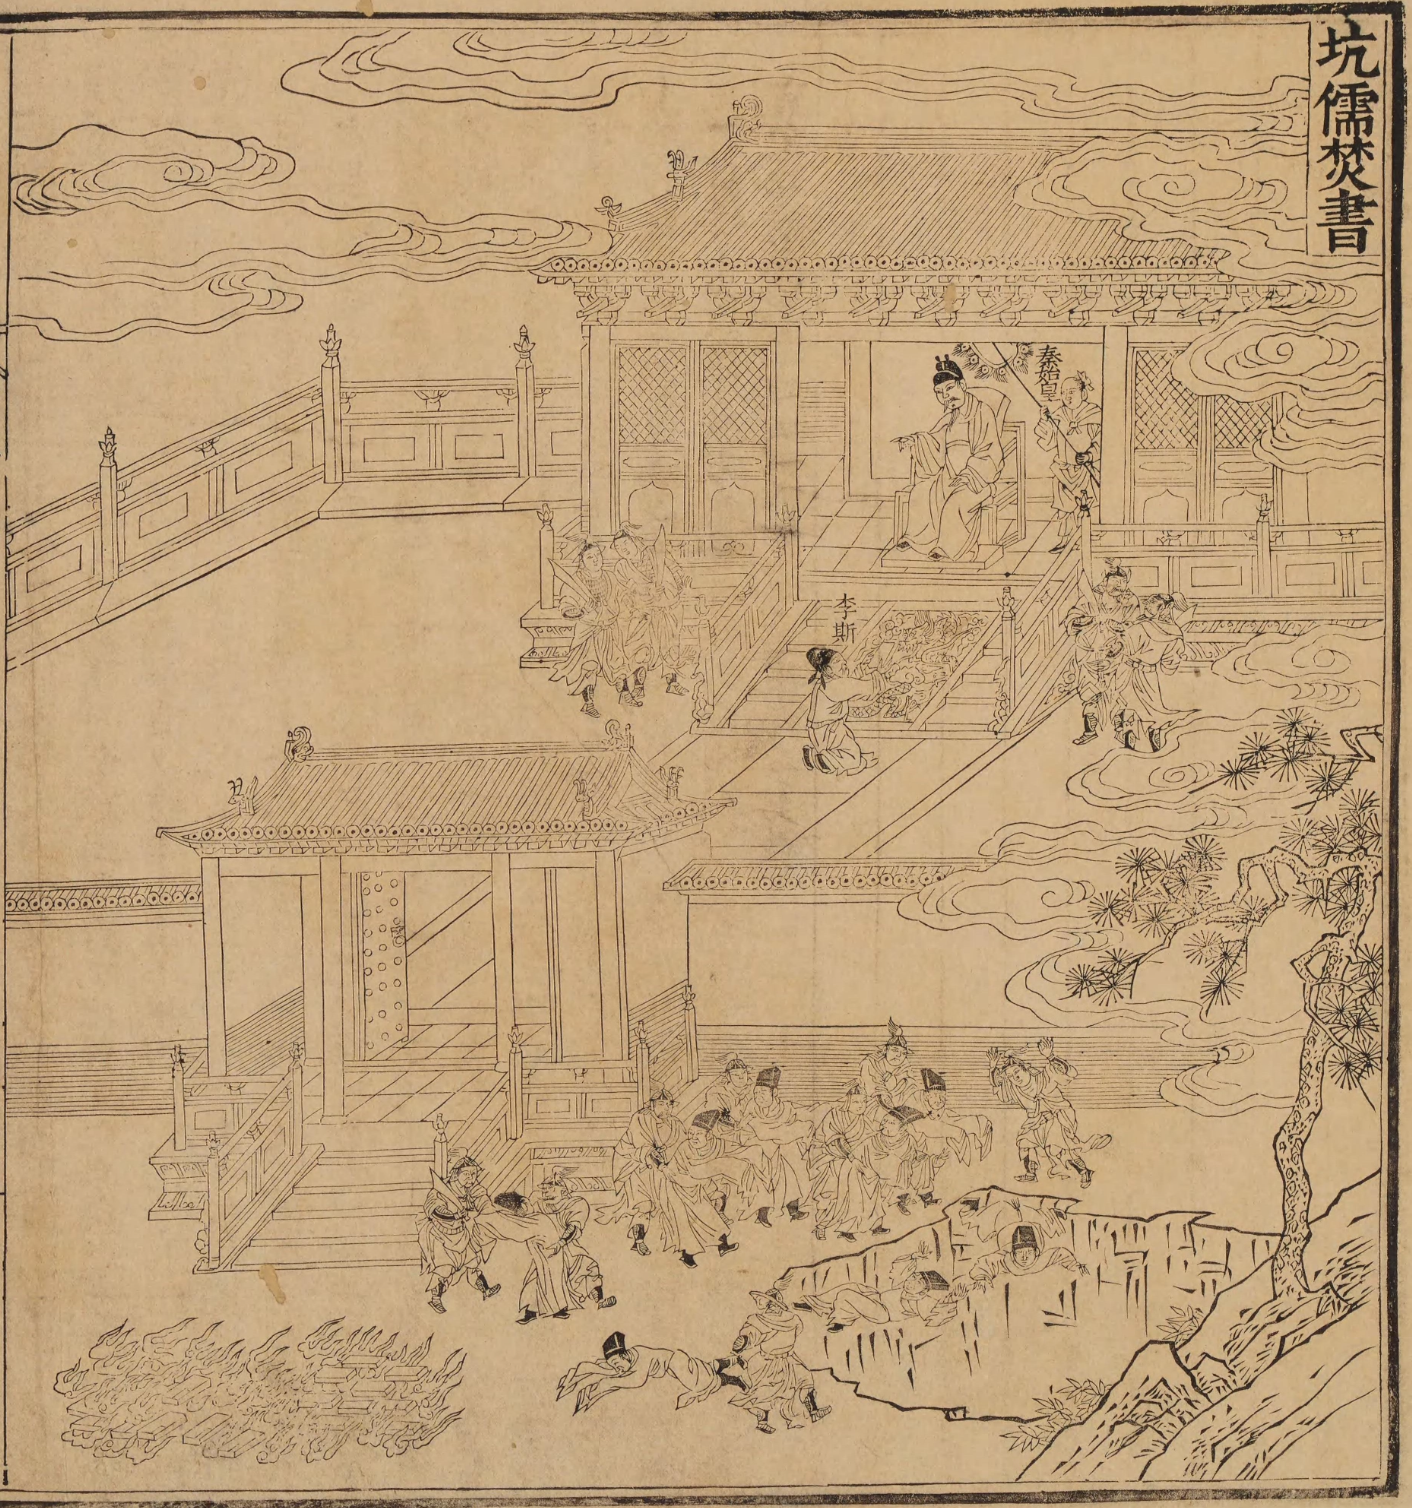 坑儒焚書
秦始皇
李斯